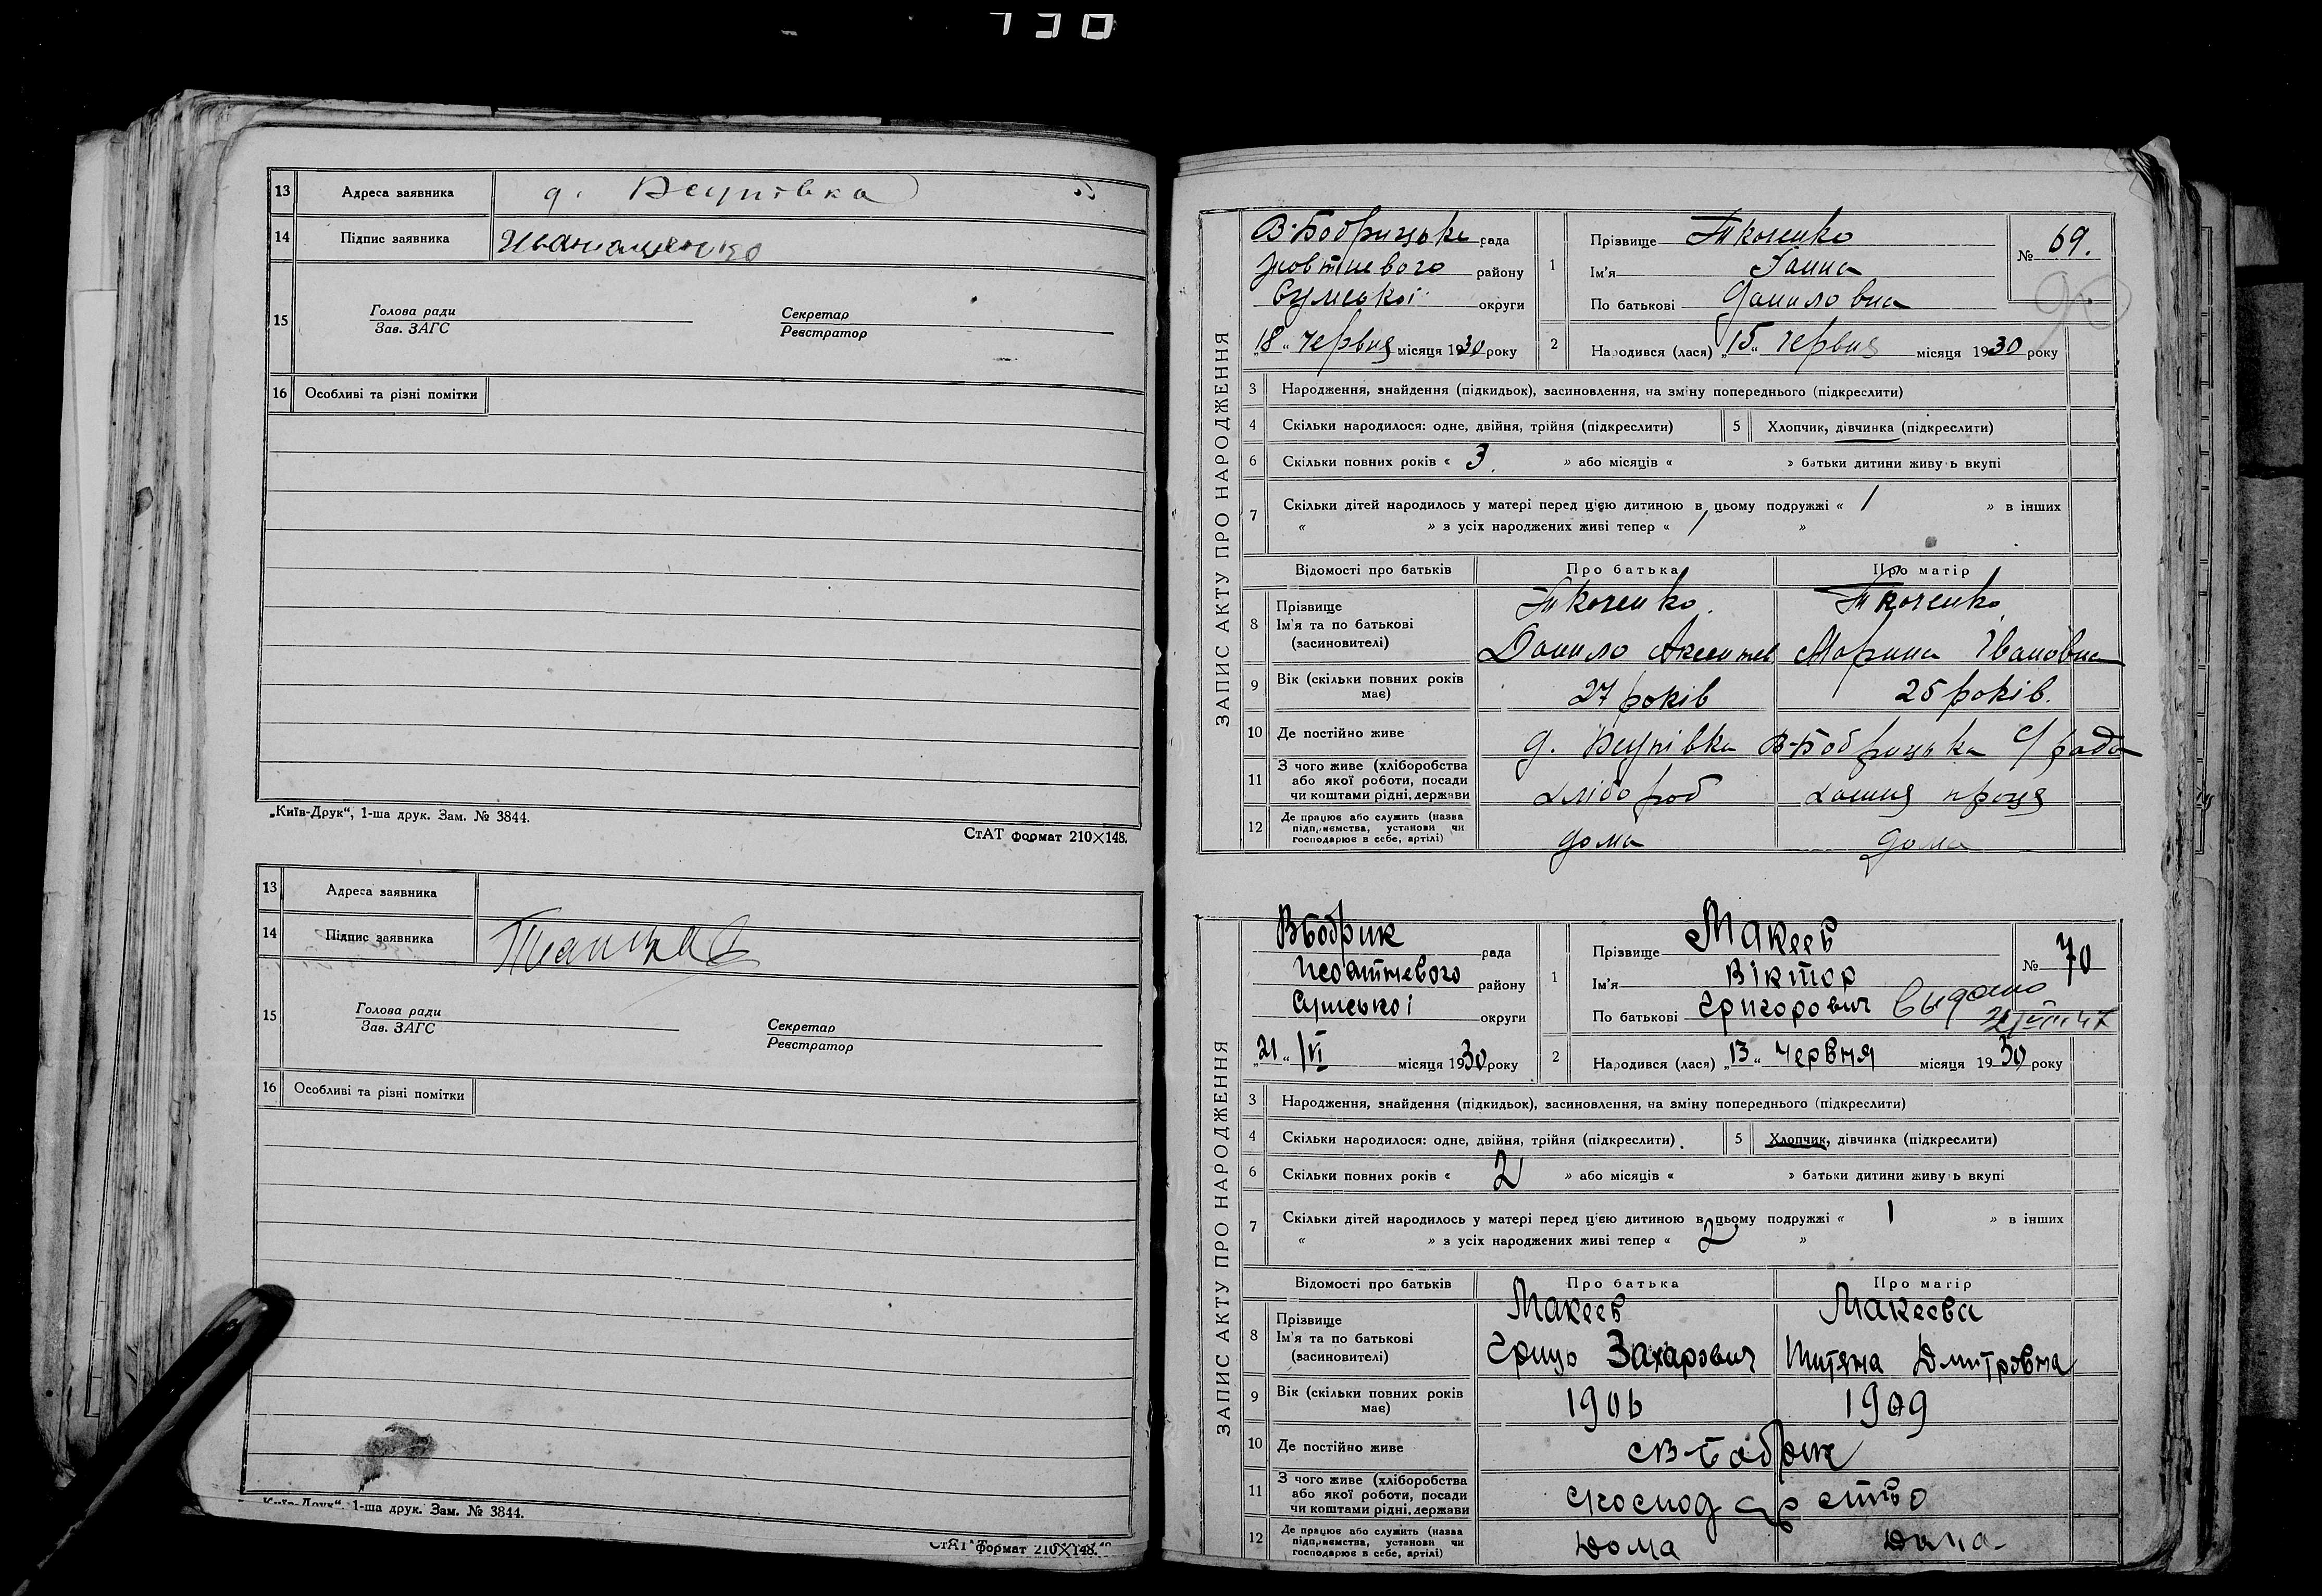 13 Адреса заявника д.
14 Підпис заявника
15 Голова ради Секретар
Зав. ЗАГС Реєстратор
16 Особливі та різні помітки
„Київ-Друк“, 1-ша друк. Зам. № 3844.
СтАТ формат 210×148.
13 Адреса заявника
14 Підпис заявника
15 Голова ради Секретар
Зав. ЗАГС Реєстратор
16 Особливі та різні помітки
„Київ-Друк“, 1-ша друк. Зам. № 3844.
СтАТ формат 210×148.
ЗАПИС АКТУ ПРО НАРОДЖЕННЯ
В-Бобрицьке рада
Жовтневого району
Сумської округи
„18“ червня місяця 1930 року
1 Прізвище Ткаченко
Ім'я Ганна
По батькові Даниловна
№ 69.
2 Народився (лася) „15“ червня місяця 1930 року
3 Народження, знайдення (підкидьок), засиновлення, на зміну попереднього (підкреслити)
4 Скільки народилося: одне, двійня, трійня (підкреслити) 5 Хлопчик, дівчинка (підкреслити)
6 Скільки повних років « 3. » або місяців « » батьки дитини живуть вкупі
7 Скільки дітей народилось у матері перед цією дитиною в цьому подружжі « 1 » в інших
« » з усіх народжених живі тепер « 1 »
Відомості про батьків Про батька Про матір
8 Прізвище Ткаченко. Ткаченко
Ім'я та по батькові
(засиновителі) Данило Марина Івановна
9 Вік (скільки повних років має) 27 років 25 років.
10 Де постійно живе д. В-Бобрицька с/рада
11 З чого живе (хліборобства або якої роботи, посади чи коштами рідні, держави хлібороб хатня праця
12 Де працює або служить (назва підприємства, установи чи господарює в себе, артілі) дома дома
ЗАПИС АКТУ ПРО НАРОДЖЕННЯ
ВБобрик рада
району
Сумської округи
„21“ /VI місяця 1930 року
1 Прізвище Макеев
Ім'я Віктор
По батькові Григорович
№ 70
Видано
2 Народився (лася) „13“ червня місяця 1930 року
3 Народження, знайдення (підкидьок), засиновлення, на зміну попереднього (підкреслити)
4 Скільки народилося: одне, двійня, трійня (підкреслити) 5 Хлопчик, дівчинка (підкреслити)
6 Скільки повних років « 2 » або місяців « » батьки дитини живуть вкупі
7 Скільки дітей народилось у матері перед цією дитиною в цьому подружжі « 1 » в інших
« » з усіх народжених живі тепер « 2 »
Відомості про батьків Про батька Про матір
8 Прізвище Макеев Макеева
Ім'я та по батькові
(засиновителі) Грицо Захарович Дмитровна
9 Вік (скільки повних років має) 1906 1909
10 Де постійно живе
11 З чого живе (хліборобства або якої роботи, посади чи коштами рідні, держави
12 Де працює або служить (назва підприємства, установи чи господарює в себе, артілі) Дома Дома